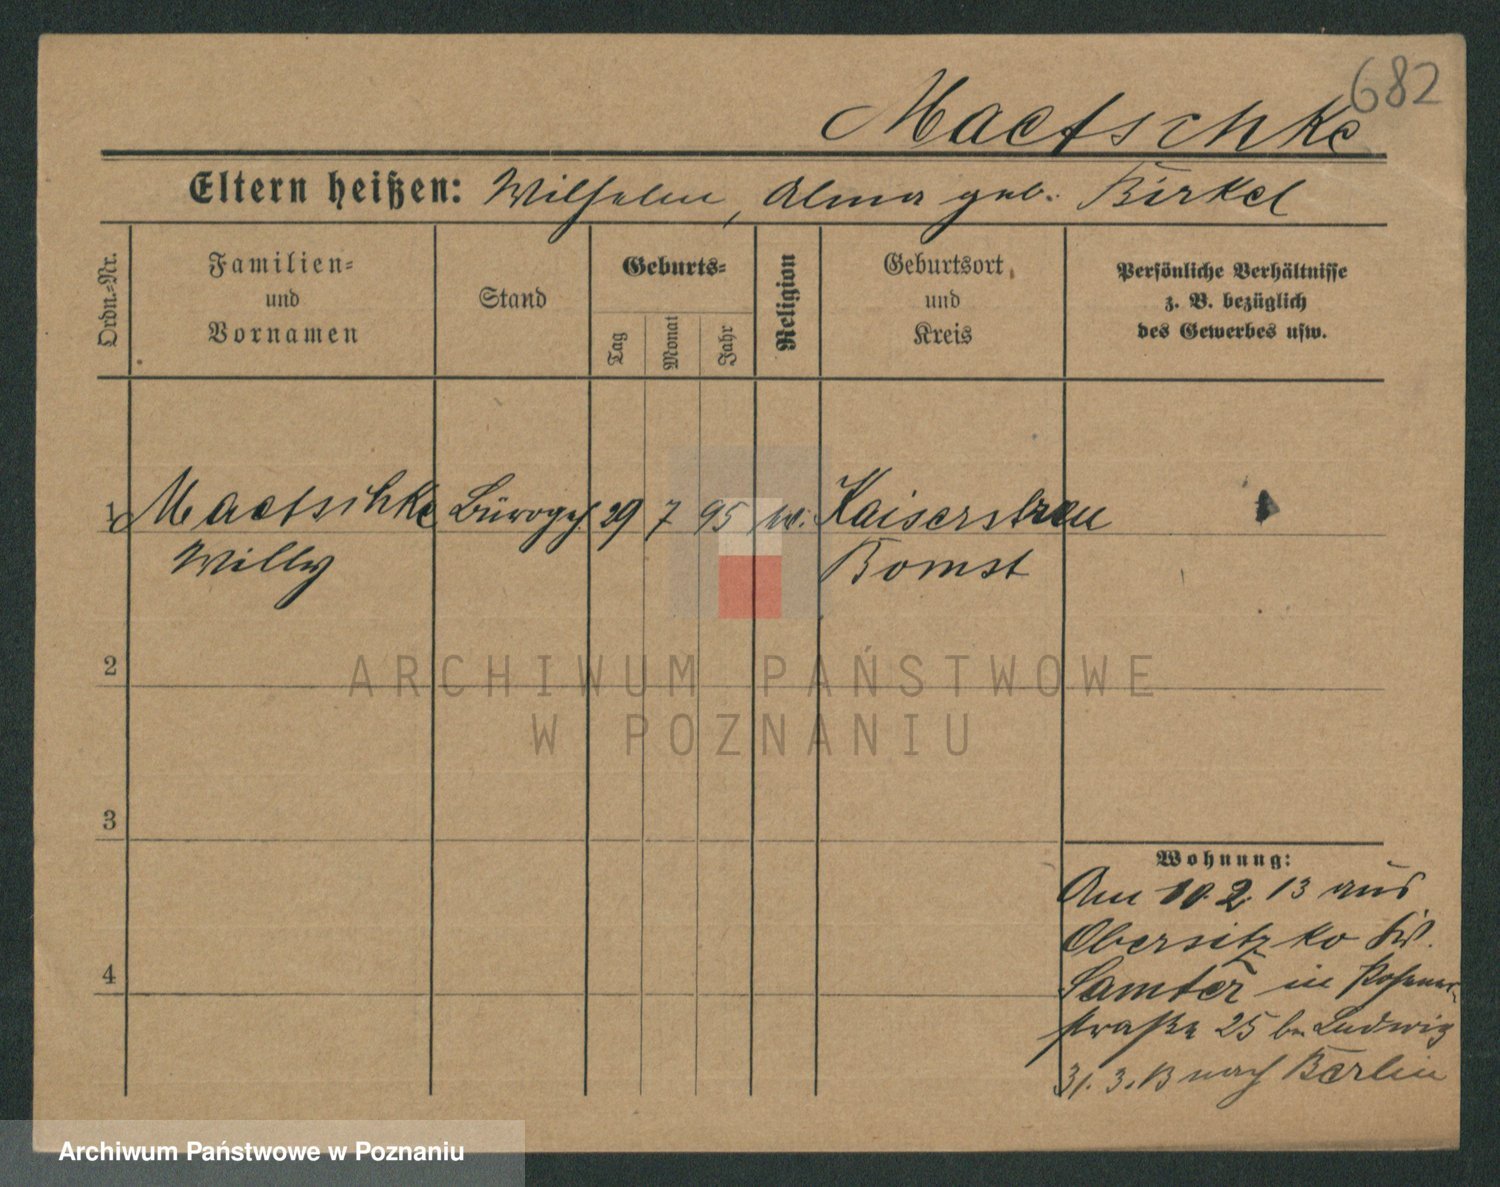 682
Maetschke
Eltern heißen: Wilhelm, Alma geb. Birkel
Ordn.-Nr.
Familien-
und
Vornamen
Stand
Geburts-
Tag
Monat
Jahr
Religion
Geburtsort
und
Kreis
Persönliche Verhältnisse
z. B. bezüglich
des Gewerbes usw.
1 Maetschke Bürogeh. 29 7 95 Kaiserstreu
Willy Bomst
2
3
4
Wohnung:
Am 10. 2. 13 aus
Obersitzko Kr.
Samter in Posener-
straße 25 bei Ludwig
31. 3. 13 nach Berlin
ARCHIWUM PAŃSTWOWE
W POZNANIU
Archiwum Państwowe w Poznaniu